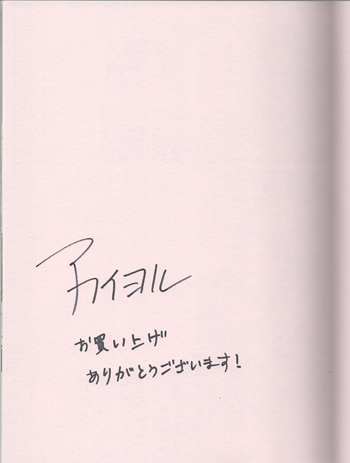 アカイヨル
お買い上げ
ありがとうございます!